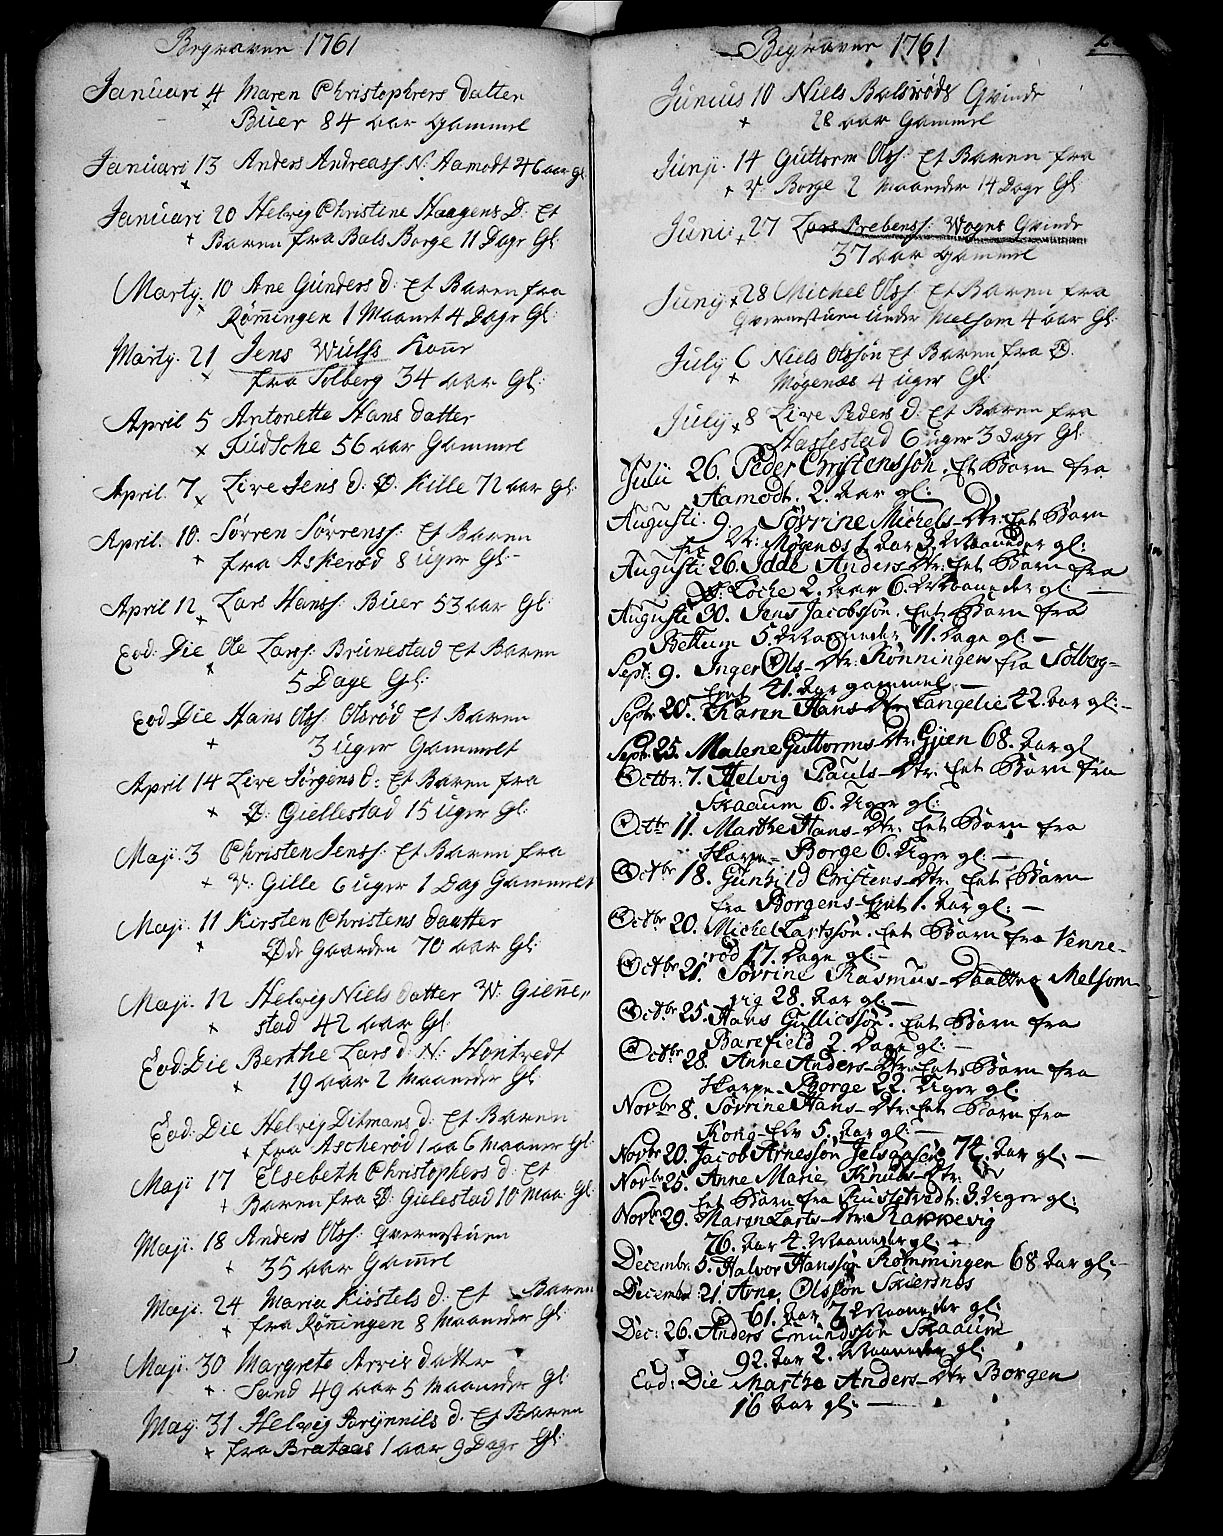 Begraven 1761
Januari 4 Maren Christophers datter
Buer 84 aar Gammel
Januari 13 Anders Andreass: N: Aamodt 46 aar gl
Januari 20 Helvig Christine Haagens D: Et
Baren fra Bals Borge 11 Dage Gl:
Marty. 10 Ane Gunders d: Et Baren fra
Rønningen 1 Maanet 4 Dage Gl:
Marty. 21 Jens Wulfs Kone
fra Solberg 34 aar Gl:
April 5 Antonette Hans datter
Judsche 56 aar Gammel
April 7 Live Jens d: Ø. Kille 72 aar gl:
April. 10. Sørren Sørrenss: Et Baren
fra Askerød 8 uger Gl:
April 12 Lars Hanss: Buer 53 aar Gl:
Eod: Die Ole Larss: Brunestad Et Baren
5 Dage Gl:
Eod Die Hans Olss: Olsrød Et Baren
3 uger Gammelt
April 14 Live Jørgens d: Et Baren fra
Ø: Giellestad 15 uger Gl:
Maji 3 Christen Jenss: Et Baren fra
V: Gille 6 uger 1 Dag Gammelt
Maji 11 Kirsten Christens daatter
Øde Gaarden 70 aar Gl:
Maji 12 Helvig Niels datter W: Gienne
stad 42 aar Gl:
Eod: Die Berthe Lars d: N: Hontvedt
19 aar 2 Maaneder Gl
Eod: Die Helvig Ditmans d: Et Baren
fra Ascherød 1 aa 6 maaner Gl:
Maji 17 Elsebeth Christophers d: Et
Baren fra Ø: Gielestad 10 Maa: Gl:
Maji. 18 Anders Olss: Qvernstuen
35 aar Gamel
Maji. 24 Maria Kiostels d: Et Baren
fra Rønningen 8 maaneder Gl:
Maji 30 Margrete Arvis datter
Sand 49 aar 5 Maaneder Gl
May. 31 Helvig d. Et Baren
fra Brataas 1 aar 9 Dage Gl:
Begraven 1761
Junius 10 Niels Balsrøds Qvinde
28 aar Gammel
Junji 14 Guttorm Olss: Et Baren fra
V: Borge 2 Maaneder 14 Dage Gl:
Juni: 27 Lars Prebenss: Wogns Qvinde
37 aar Gammel
Juny 28 Michel Olss: Et Baren fra
Qvernstuen under Melsom 4 aar Gl:
July 6 Niels Olssøn Et Baren fra Ø.
Møgenæs 4 uger Gl
July 8 Live Peders d: Et Baren fra
Haslestad 6 uger 3 Dage Gl:
Julii 26. Peder Christenssøn. Et Barn fra
Aamodt. 2. Aar gl:
Augusti. 9. Søvrine Michels-Dtr: Eet Barn
fra W: Møgenæs 1 Aar 3. Maaneder gl:
Augusti 26. Idde Anders-Dtr: Eet Barn fra
W: Loche 2. Aar 6. Maaneder gl:
Augusti 30. Jens Jacobssøn. Eet Barn fra
Bettum 5. Maaneder 11. Dage gl:
Sept. 9. Inger Ols-Dtr: Rønningen fra Solberg-
Eiet 41. Aar gammel.
Septr 20. Karen Hans-Dtr Langelie 42. Aar gl:
Septr 25. Malene Guttorms-Dtr. Gjien 68. Aar gl
Octbr: 7. Helvig Pauls-Dtr: Eet Barn fra
Skaaum 6. Uger gl:
Octbr 11. Marthe Hans-Dtr: Eet Barn fra
Skarpe-Borge 6. Uger gl:
Octbr 18. Gunhild Christens-Dtr. Eet Barn
fra Borgens-Eiet 1. Aar gl:
Octbr 20. Michel Lartssøn. Eet Barn fra Venne-
rød 17. Dage gl:
Octbr 21. Søvrine Rasmus-Daatter Melsom-
vig 28. Aar gl:
Octbr 25. Hans Gullicssøn. Eet Barn fra
Barefield 2. Dage gl:
Octbr 28. Anne Anders-Dtr: Eet Barn fra
Skarpe-Borge 22. Uger gl:
Novbr 8. Søvrine Hans-Dtr: Eet Barn fra
Kong-Elv 5. Aar gl:
Novbr 20. Jacob Arnessøn 74. Aar gl:
Novbr 25. Anne Marie Knuts-Dtr:
Eet Barn fra 3. Uger gl:
Novbr 29. Maren Larts-Dtr: Rappevig
76. Aar 4. Maaneder gl:
Decembr. 5. Halvor Hanssøn Rømmingen 68 Aar gl:
Decembr 21. Arne Olssøn Skiersnes
61. Aar 7. Maaneder gl:
Dec: 26. Anders Emundssøn Skaaum
92. Aar 2. Maaneder gl:
Eod: Die Marthe Anders-Dtr Borgen
16 Aar gl: